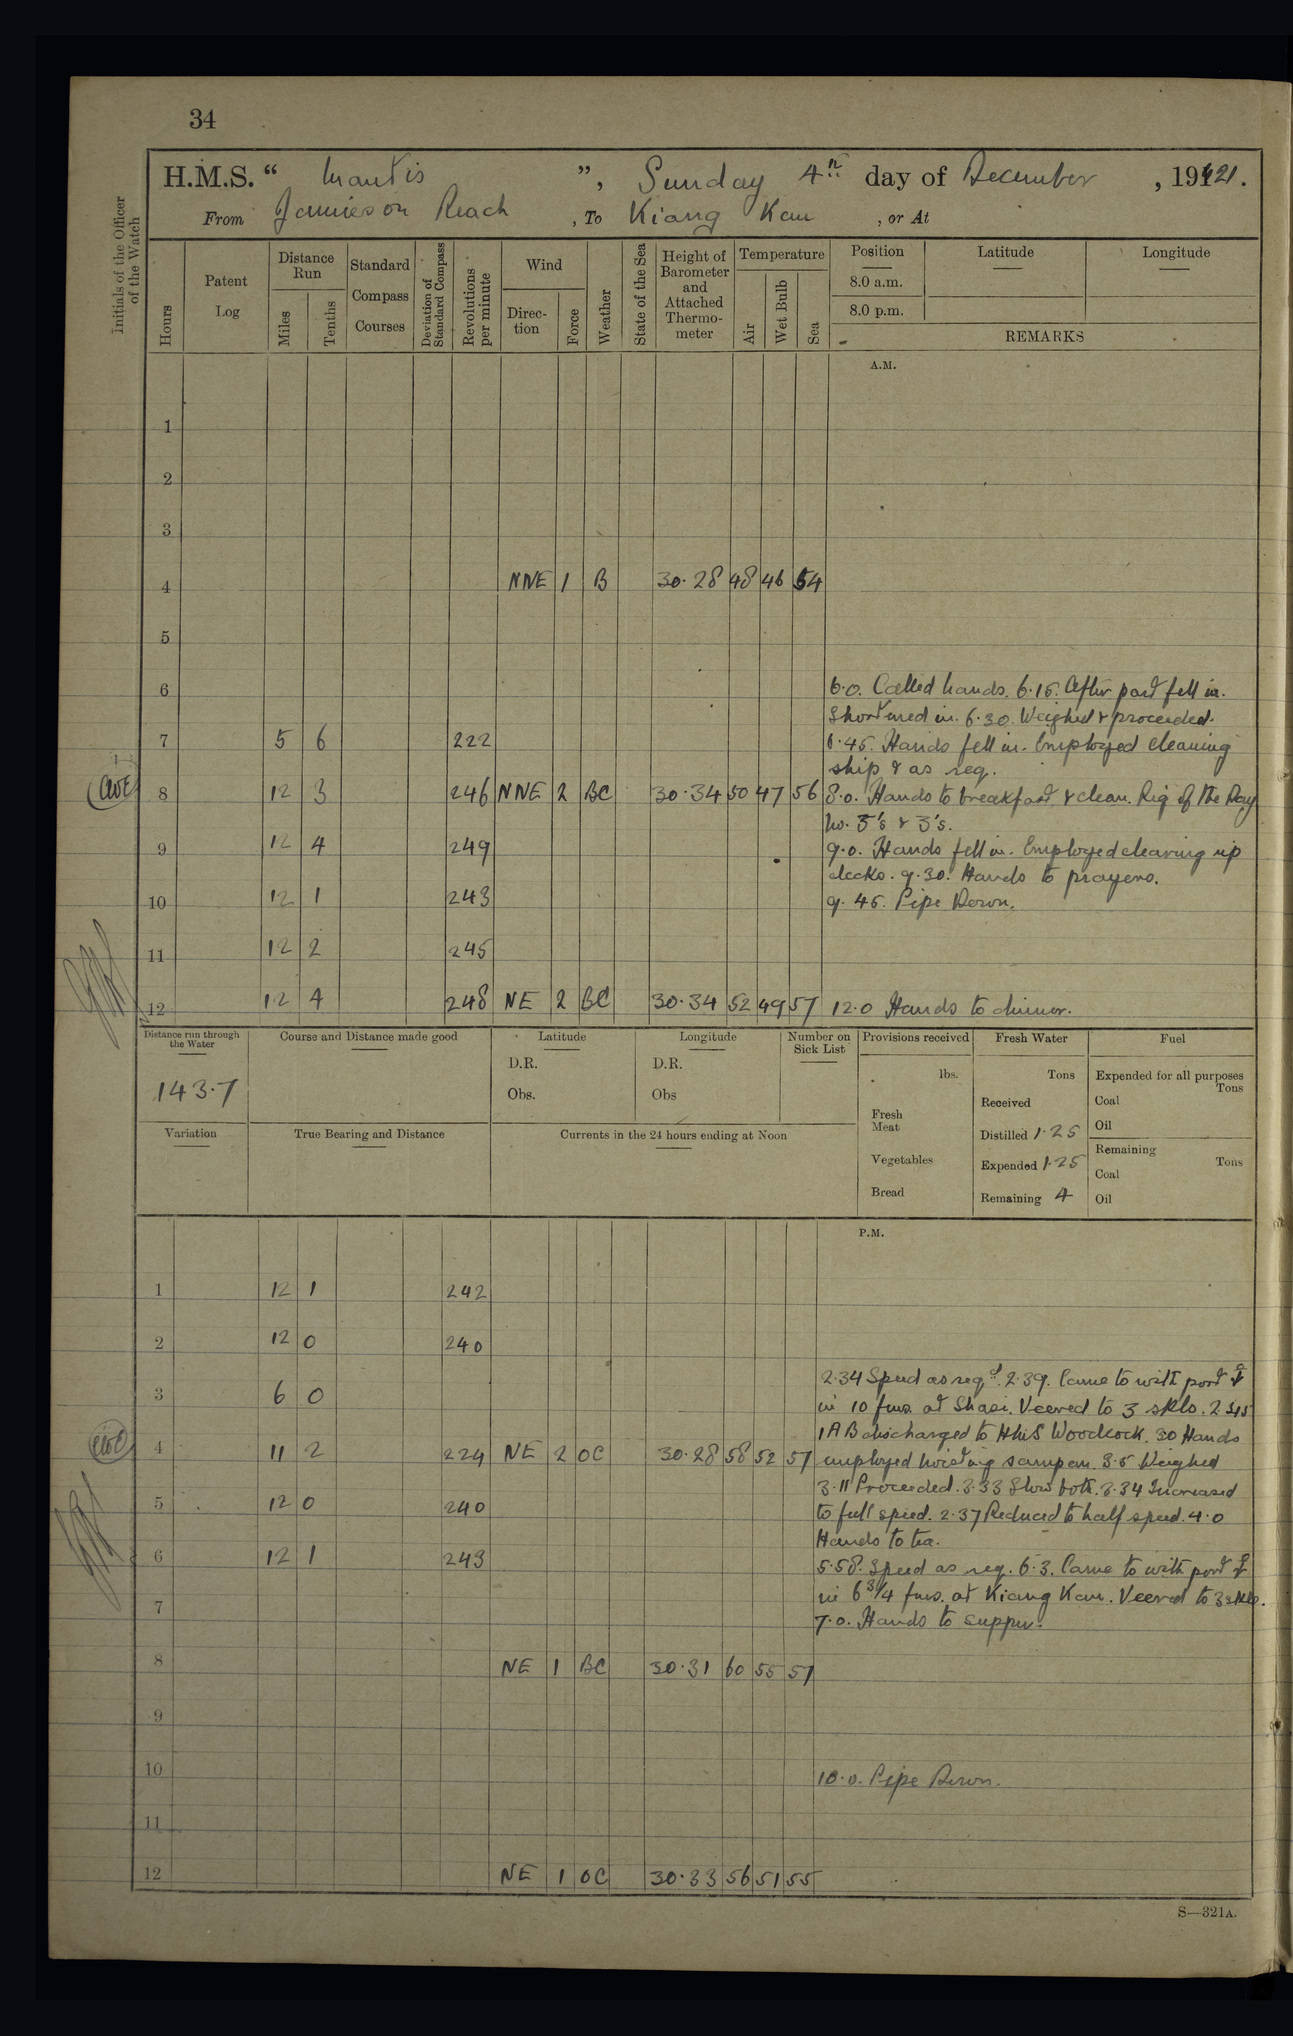 34
H.M.S. “ Mantis ”, Sunday 4th day of December , 1921.
From Jamieson Reach , To Kiang Kau , or At
Initials of the Officer of the Watch
Hours
Patent Log
Distance Run
Miles
Tenths
Standard Compass Courses
Deviation of Standard Compass
Revolutions per minute
Wind
Direc-tion
Force
Weather
State of the Sea
Height of Barometer and Attached Thermo-meter
Temperature
Air
Wet Bulb
Sea
Position
8.0 a.m.
8.0 p.m.
Latitude
Longitude
REMARKS
A.M.
1
2
3
4 NNE 1 B 30.28 48 46 54
5
6 6.0. Called hands. 6.15. After part fell in.
Shortened in. 6.30. Weighed & proceeded.
7 5 6 222 6.45. Hands fell in. Employed cleaning
ship & as req.
8 12 3 246 NNE 2 BC 30.34 50 47 56 8.0. Hands to breakfast & clean. Rig of the Day
No. 5's & 3's.
9 12 4 249 9.0. Hands fell in. Employed clearing up
decks. 9.30. Hands to prayers.
10 12 1 243 9.45. Pipe Down.
11 12 2 245
12 12 4 248 NE 2 BC 30.34 52 49 57 12.0 Hands to dinner.
Distance run through the Water
143.7
Course and Distance made good
Latitude
D.R.
Obs.
Longitude
D.R.
Obs
Number on Sick List
Provisions received
lbs.
Fresh Meat
Vegetables
Bread
Fresh Water
Tons
Received
Distilled 1.25
Expended 1.25
Remaining 4
Fuel
Expended for all purposes
Tons
Coal
Oil
Remaining
Tons
Coal
Oil
Variation
True Bearing and Distance
Currents in the 24 hours ending at Noon
P.M.
1 12 1 242
2 12 0 240
2.34 Speed as reqd. 2.39. Came to with port
3 6 0 in 10 fms. at Shasi. Veered to 3 skls. 2.45
1 AB discharged to HMS Woodcock. 30 Hands
4 11 2 224 NE 2 OC 30.28 58 52 57 employed hoisting sampan. 3.5 Weighed
3.11 Proceeded. 3.33 Slow both. 3.34 Increased
5 12 0 240 to full speed. 2.37 Reduced to half speed. 4.0
Hands to tea.
6 12 1 243 5.58. Speed as req. 6.3. Came to with port
in 6 3/4 fms. at Kiang Kau. Veered to 3 skls.
7 7.0. Hands to supper.
8 NE 1 BC 30.31 60 55 57
9
10 10.0. Pipe Down.
11
12 NE 1 OC 30.33 56 51 55
S—321A.